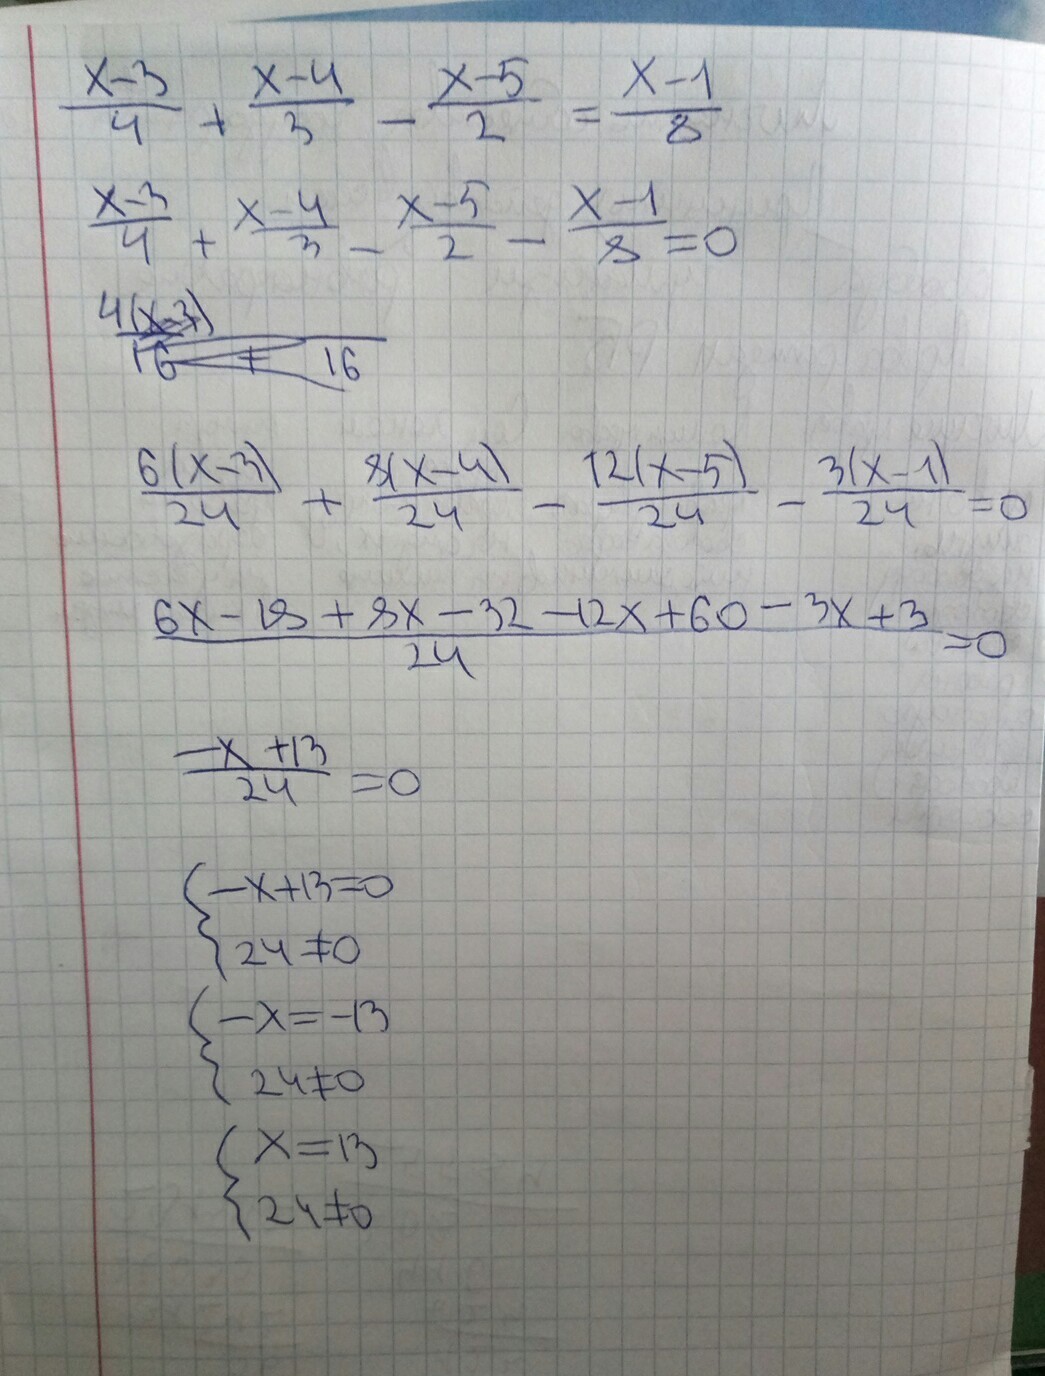 x-3/4 + x-4/3 - x-5/2 = x-1/8
x-3/4 + x-4/3 - x-5/2 - x-1/8 = 0
6(x-3)/24 + 8(x-4)/24 - 12(x-5)/24 - 3(x-1)/24 = 0
6x-18+8x-32-12x+60-3x+3/24 = 0
-x+13/24 = 0
{-x+13=0
24≠0
{-x=-13
24≠0
{x=13
24≠0